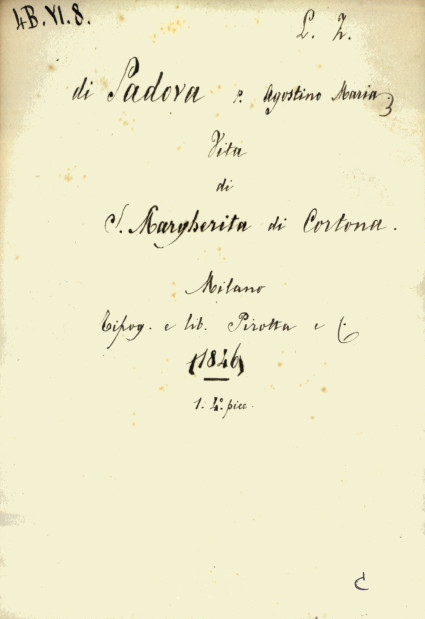 4B.VI.8.
L. Z.
di Padova P. Agostino Maria;
Vita
di
S. Margherita di Cortona.
Milano
Tipog. e lib. Pirotta e C.
(1846)
1. 4º. picc.
C